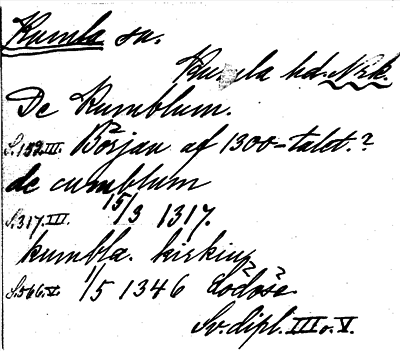 Kumla sn.
Kumla hd. Nrk.
De Kumblum.
S.152.III. Början af 1300-talet.?
de cumblum
S.317.III. 15/3 1317.
kumbla. kirkiu
S.566.V. 1/5 1346 Lödöse
Sv. dipl. III o. V.